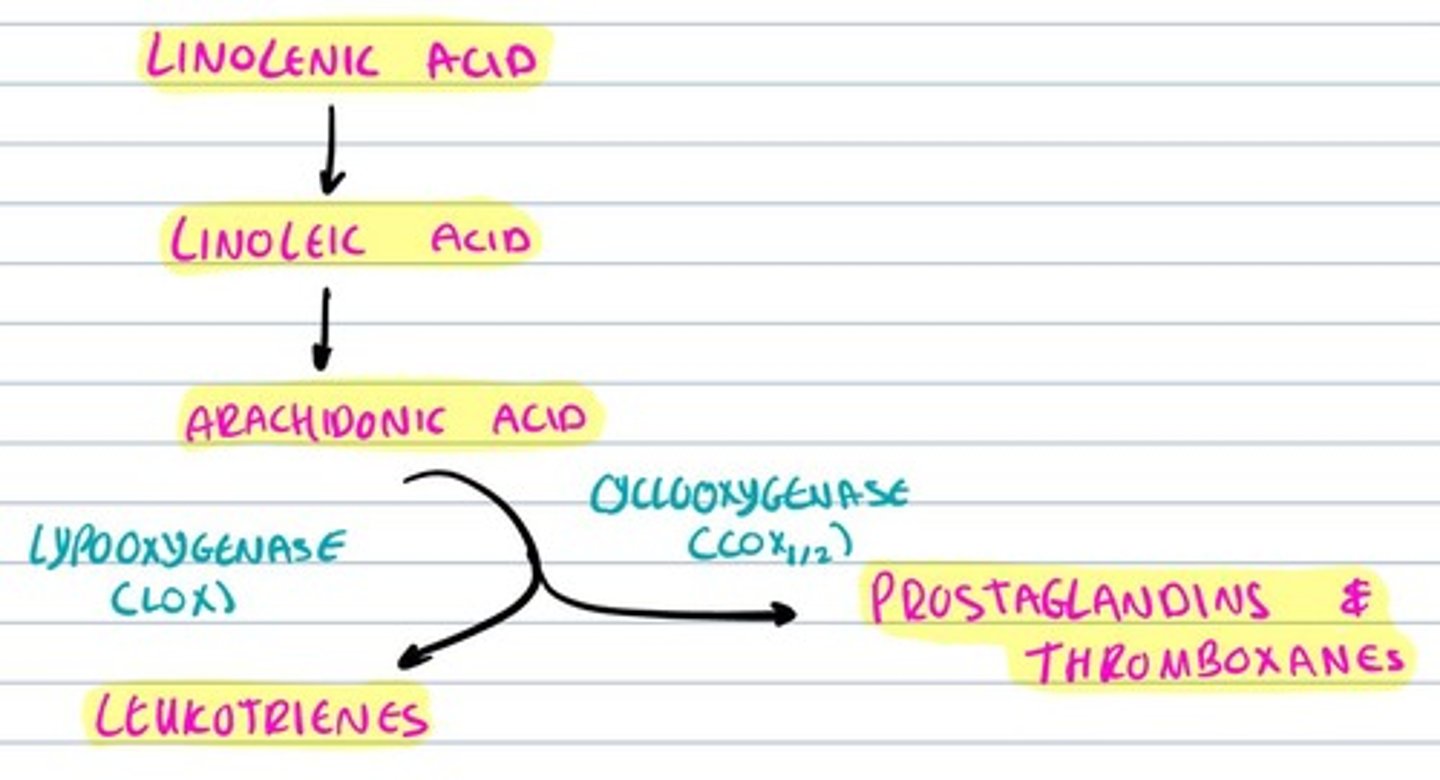 LINOLENIC ACID
LINOLEIC ACID
ARACHIDONIC ACID
CYCLOOXYGENASE
(COX1/2)
LYPOOXYGENASE
(LOX)
PROSTAGLANDINS &
THROMBOXANES
LEUKOTRIENES